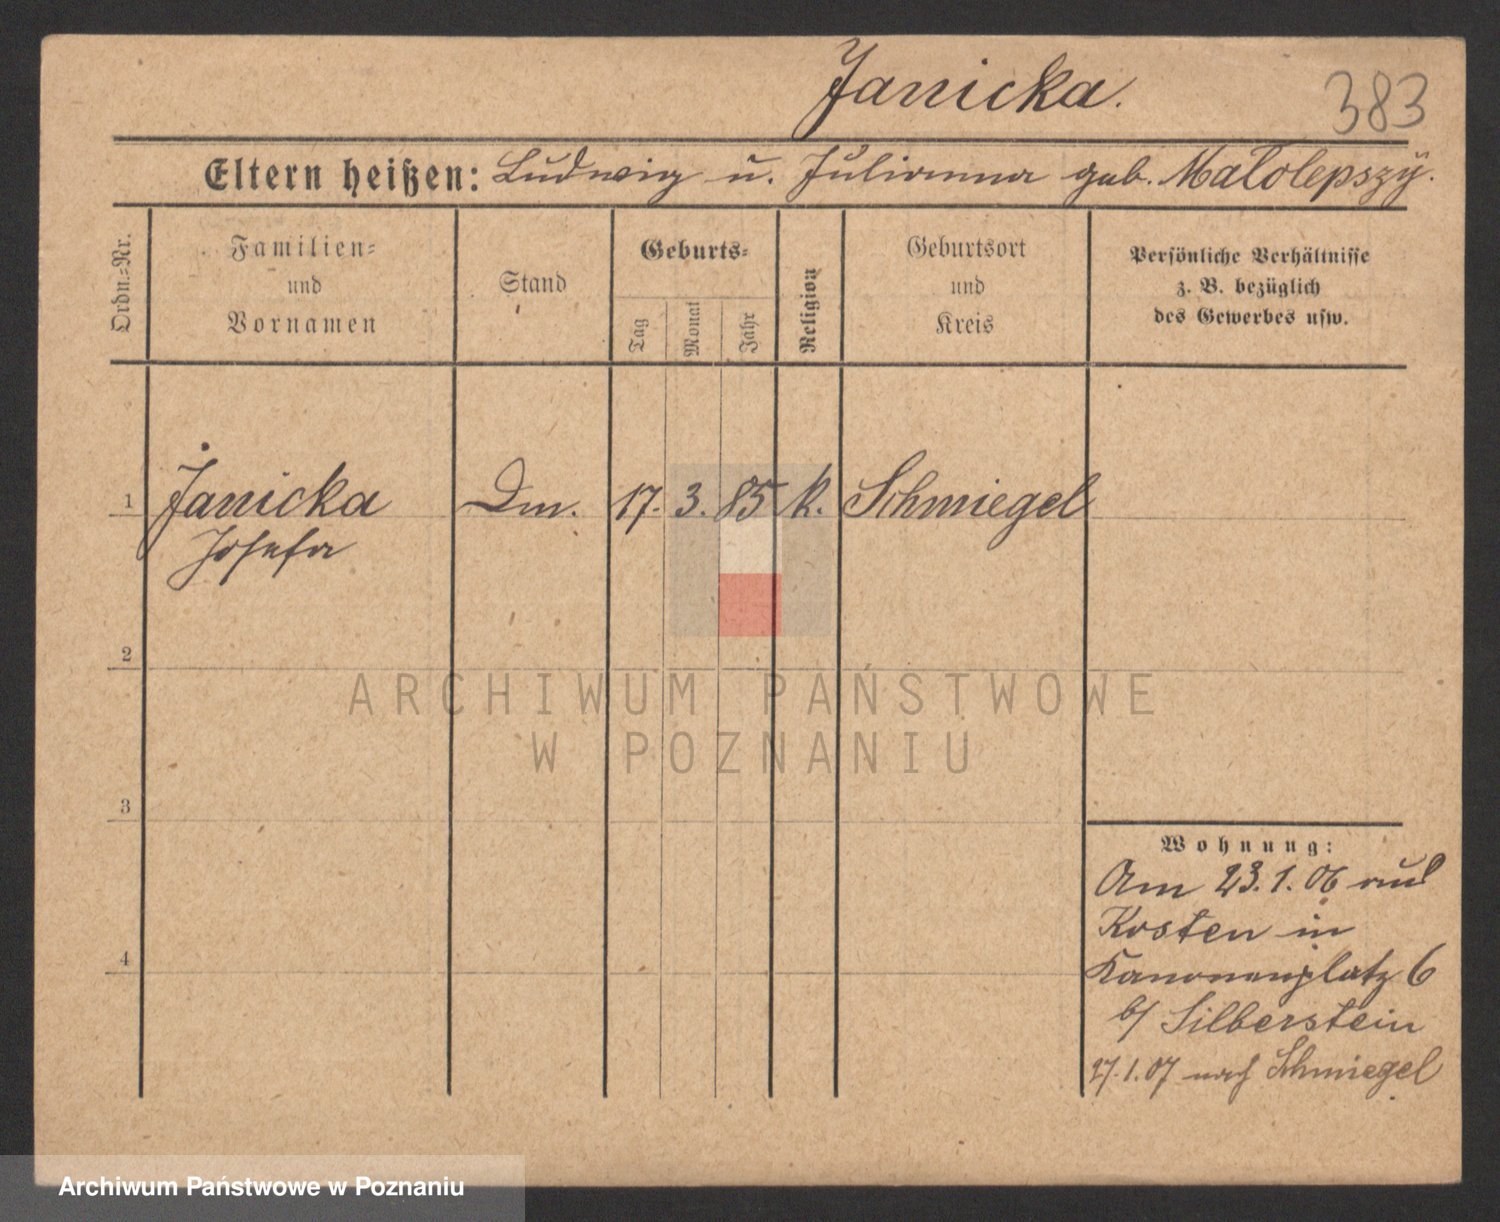 Janicka.
383
Eltern heißen: Ludwig u. Julianna geb. Malolepszy.
Ordn.=Nr.
Familien=
und
Vornamen
Stand
Geburts=
Tag
Monat
Jahr
Religion
Geburtsort
und
Kreis
Persönliche Verhältnisse
z. B. bezüglich
des Gewerbes usw.
1 Janicka Dm. 17. 3. 85 k. Schmiegel
Josefa
2
3
4
Wohnung:
Am 23.1.06 aus
Kosten in
Kanonenplatz 6
b/ Silberstein
27.1.07 nach Schmiegel
ARCHIWUM PAŃSTWOWE
W POZNANIU
Archiwum Państwowe w Poznaniu